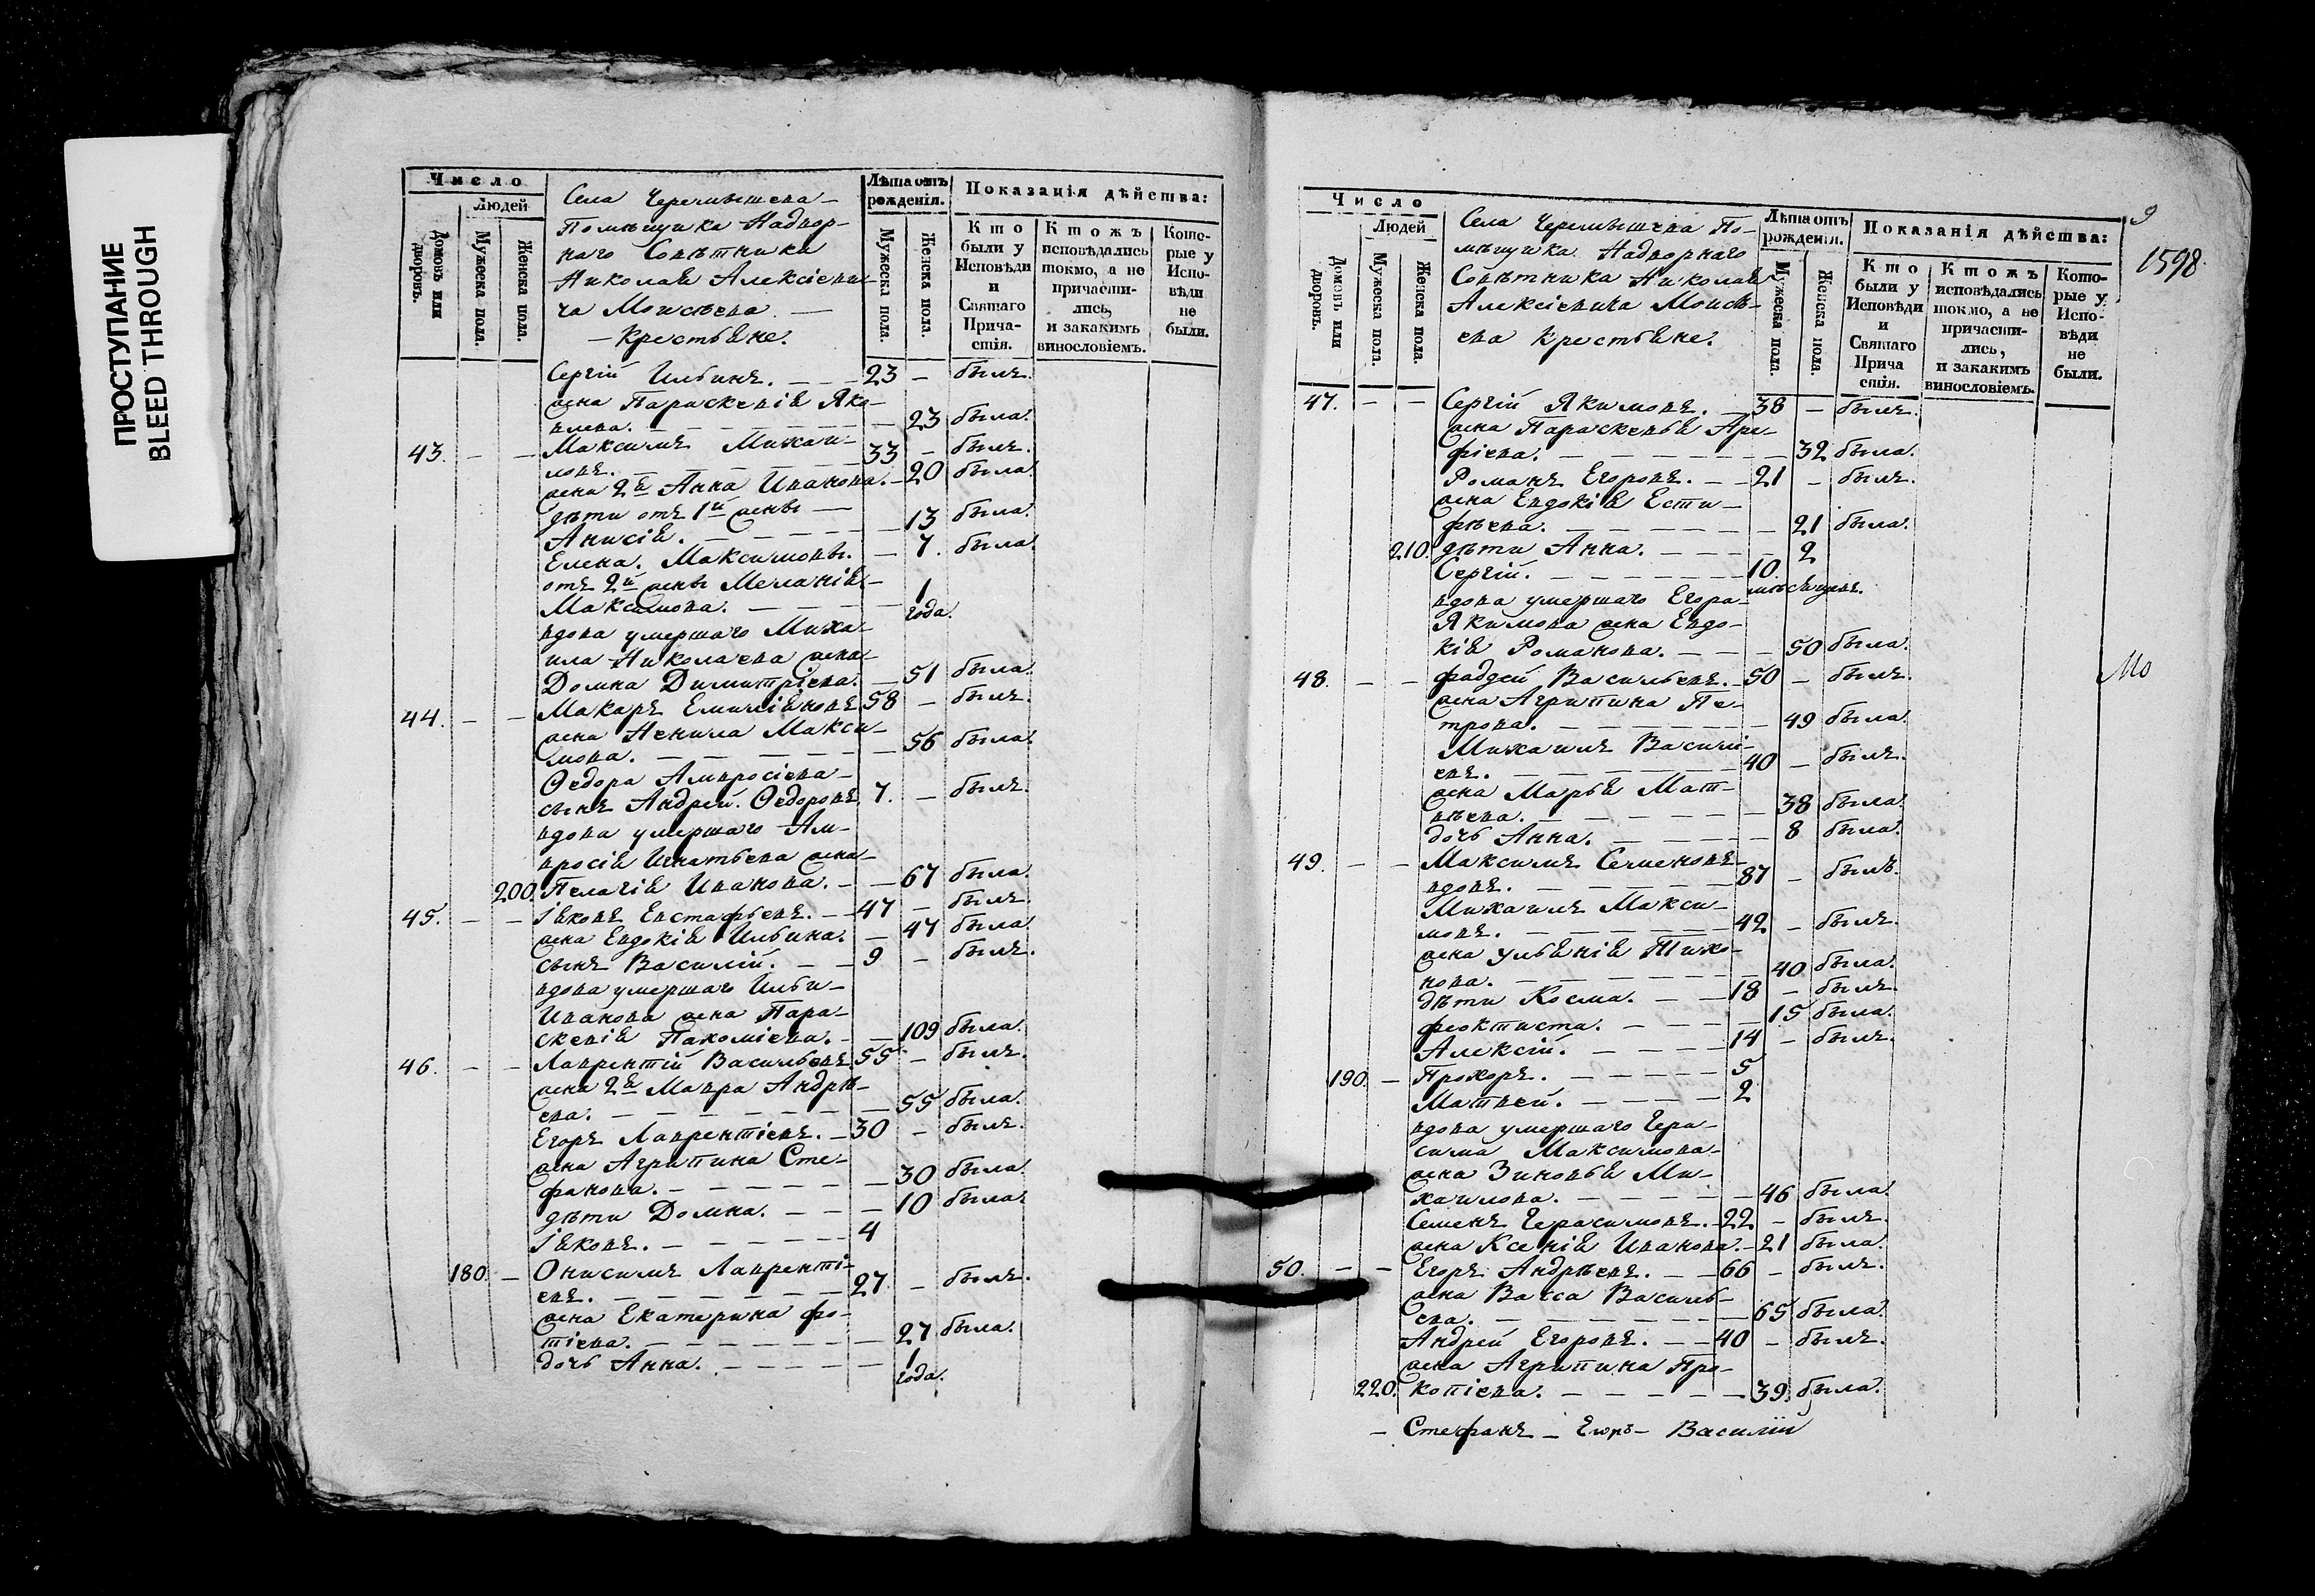 ПРОСТУПАНИЕ
BLEED THROUGH
Число
Людей
Домовъ или дворовъ.
Мужеска пола.
Женска пола.
Села Черемышева
Помѣщика Надвор-
наго Совѣтника
Николая Алексіеви-
ча Моисѣева
Крестьяне.
Лѣта отъ рожденія.
Мужеска пола.
Женска пола.
Показанія дѣйства:
Кто были у Исповѣди и Святаго Прича-стія.
Ктожъ исповѣдались токмо, а не причасти-лись, и закакимъ винословіемъ.
Кото-рые у Испо-вѣди не были.
Сергій Ильинъ. 23 - былъ.
жена Параскевія Яко-
влева. 23 была.
43. - - Максимъ Михаи-
ловъ. 33 - былъ.
жена 2я Анна Иванова. - 20 была.
дѣти отъ 1й жены
Анисія. - 13 была.
Елена. Максимовы. - 7. была.
отъ 2й жены Меланія
Максимова. - 1 года.
вдова умершаго Миха-
ила Николаева жена
Домна Димитріева. - 51 была.
44. - - Макаръ Емиліяновъ. 58 - былъ.
жена Ненила Макси-
мова. - 56 была.
Ѳедора Амвросіева
сынъ Андрей Ѳедоровъ. 7. - былъ.
вдова умершаго Ам-
вросія Игнатьева жена
200. Пелагія Иванова. - 67 была.
45. - - Іяковъ Евстафьевъ. 47 - былъ.
жена Евдокія Ильина. - 47 была.
сынъ Василій. 9 - былъ.
вдова умершаго Ильи
Иванова жена Пара-
скевія Пахоміева. - 109 была.
46. - - Лаврентій Васильевъ. 55 - былъ.
жена 2я Мавра Андрѣ-
ева. - 55 была.
Егоръ Лаврентіевъ. 30 - былъ.
жена Агрипина Сте-
фанова. - 30 была.
дѣти Домна. - 10 была.
Іяковъ. 4
180. - Онисимъ Лавренті-
евъ. 27. - былъ.
жена Екатерина Фо-
тіева. - 27 была.
дочь Анна. - 1 года.
9
1598.
Число
Людей
Домовъ или дворовъ.
Мужеска пола.
Женска пола.
Села Черемышева По-
мѣщика Надворнаго
Совѣтника Николая
Алексіевича Моисѣ-
ева Крестьяне.
Лѣта отъ рожденія.
Мужеска пола.
Женска пола.
Показанія дѣйства:
Кто были у Исповѣди и Святаго Прича стія.
Ктожъ исповѣдались токмо, а не причасти-лись, и закакимъ винословіемъ.
Кото-рые у Испо-вѣди не были.
47. - - Сергій Якимовъ. 38 - былъ.
жена Параскевья Аре-
фіева. - 32 была.
Романъ Егоровъ. 21 - былъ.
жена Евдокія Ести-
фѣева. - 21 была.
210. дѣти Анна. - 2
Сергій. 10 мѣсяцевъ.
вдова умершаго Егора
Якимова жена Евдо-
кія Романова. - 50 была.
48. - - Фаддей Васильевъ. 50 - былъ.
Мо
жена Агрипина Пе-
трова. - 49 была.
Михаилъ Василі-
евъ. 40 - былъ.
жена Марья Мат-
вѣева. - 38 была.
дочь Анна. - 8 была.
49. - - Максимъ Семеновъ
вдовъ. 87 - былъ.
Михаилъ Макси-
мовъ. 42 - былъ.
жена Ульянія Тихо-
нова. - 40 была.
дѣти Косма. 18 - былъ.
Феоктиста. - 15 была.
Алексій. 14 - былъ.
190. - Прохоръ. 5
Матвей. 2
вдова умершаго Гера-
сима Максимова
жена Зиновья Ми-
хаилова. - 46 была.
Семенъ Герасимовъ. 22 - былъ.
жена Ксенія Иванова. - 21 была.
50. - - Егоръ Андрѣевъ. 66 - былъ.
жена Васса Василь-
ева. - 65 была.
Андрей Егоровъ. 40 - былъ.
жена Агрипина Про-
220. копіева. - 39. была.
- Стефанъ - Егоръ - Василій